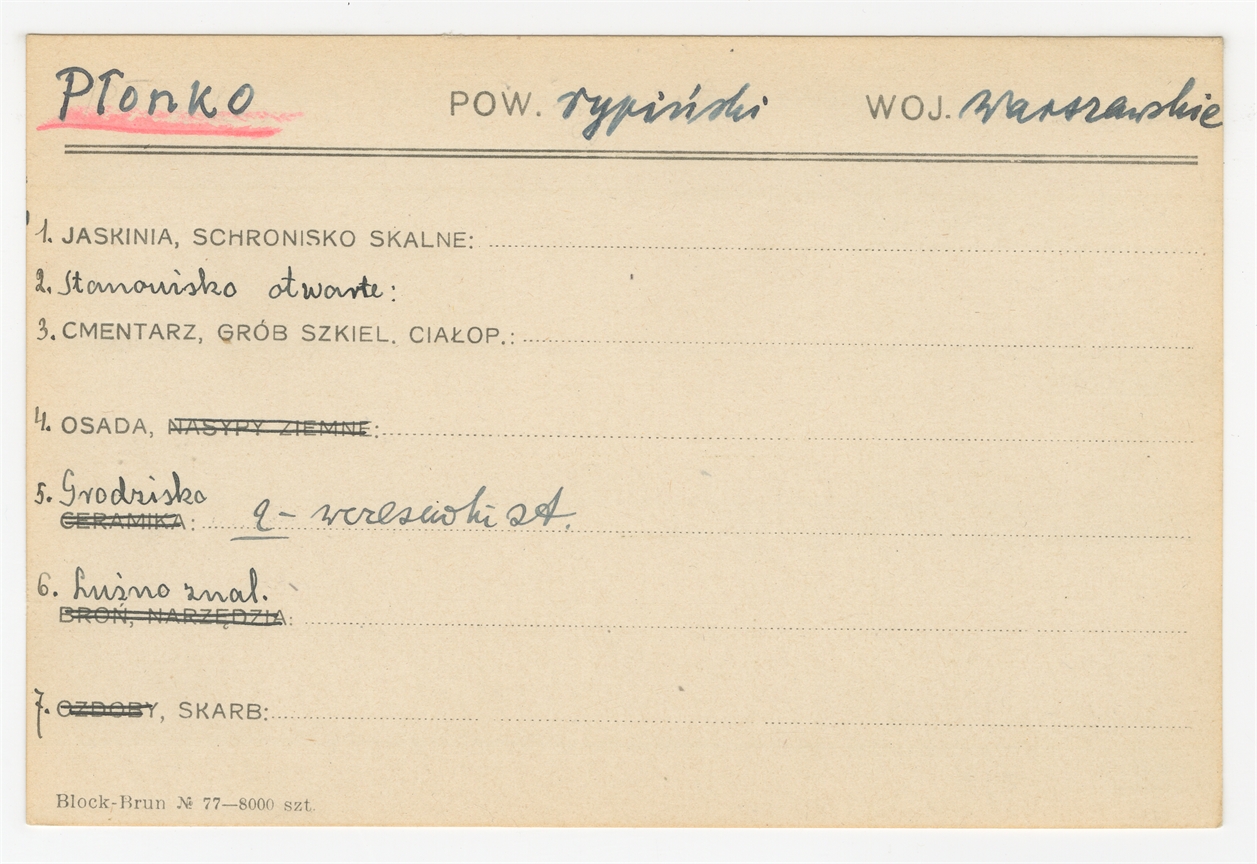 Płonko POW. rypiński WOJ. Warszawskie
1. JASKINIA, SCHRONISKO SKALNE:
2. Stanowisko otwarte:
3. CMENTARZ, GRÓB SZKIEL. CIAŁOP.:
4. OSADA, NASYPY ZIEMNE:
5. Grodzisko
CERAMIKA:
6. Luźno znal.
BROŃ, NARZĘDZIA:
7. OZDOBY, SKARB:
Block-Brun № 77—8000 szt.